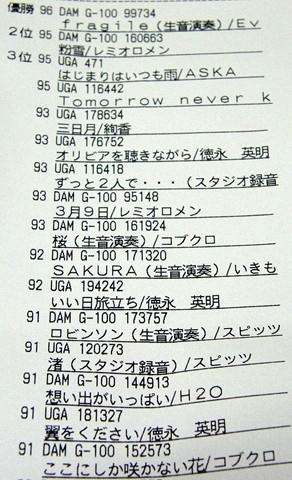 優勝 96 DAM G-100 99734
ｆｒａｇｉｌｅ（生音演奏）/Ｅｖ
２位 95 DAM G-100 160663
粉雪/レミオロメン
３位 95 UGA 471
はじまりはいつも雨/ASKA
95 UGA 116442
Ｔｏｍｏｒｒｏｗ ｎｅｖｅｒ ｋ
93 UGA 178634
三日月/絢香
93 UGA 176752
オリビアを聴きながら/徳永 英明
93 UGA 116418
ずっと２人で・・・（スタジオ録音
93 DAM G-100 95148
３月９日/レミオロメン
93 DAM G-100 161924
桜（生音演奏）/コブクロ
92 DAM G-100 171320
ＳＡＫＵＲＡ（生音演奏）/いきも
92 UGA 194242
いい日旅立ち/徳永 英明
91 DAM G-100 173757
ロビンソン（生音演奏）/スピッツ
91 UGA 120273
渚（スタジオ録音）/スピッツ
91 DAM G-100 144913
想い出がいっぱい/Ｈ２Ｏ
91 UGA 181327
翼をください/徳永 英明
91 DAM G-100 152573
ここにしか咲かない花/コブクロ